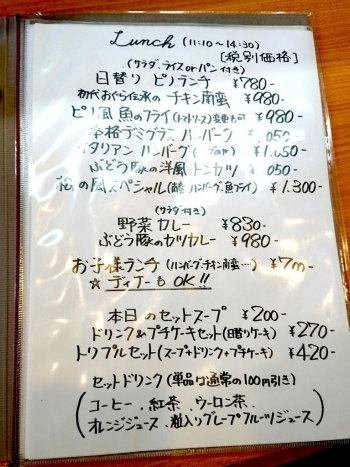 Lunch (11:10~14:30)
[税別価格]
(サラダ、ライスorパン付き)
日替り ピノランチ ¥780-
初代おぐら伝承の チキン南蛮 ¥980-
ピノ風 魚のフライ(トマトソース)変更も可 ¥980-
本格デミグラスハンバーグ 1,050-
イタリアン ハンバーグ ¥1,050
ぶどう豚の洋風トンカツ ¥1,050-
松の風スペシャル(南蛮、ハンバーグ、魚フライ) ¥1,300-
(サラダ付き)
野菜カレー ¥830-
ぶどう豚のカツカレー ¥980-
お子様ランチ (ハンバーグ、チキン南蛮…) ¥700-
☆ ディナーも OK!!
本日のセットスープ ¥200-
ドリンク&プチケーキセット(日替りケーキ) ¥270-
トリプルセット(スープ+ドリンク+プチケーキ) ¥420-
セットドリンク(単品は通常の100円引き)
(コーヒー、紅茶、ウーロン茶、
オレンジジュース、粒入りグレープフルーツジュース)